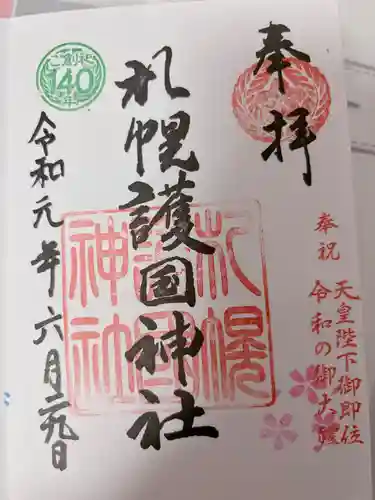 奉拝
奉祝
天皇陛下御即位
令和の御大礼
札幌護国神社
札幌
護国
神社
ご創祀
140
年
令和元年六月二九日